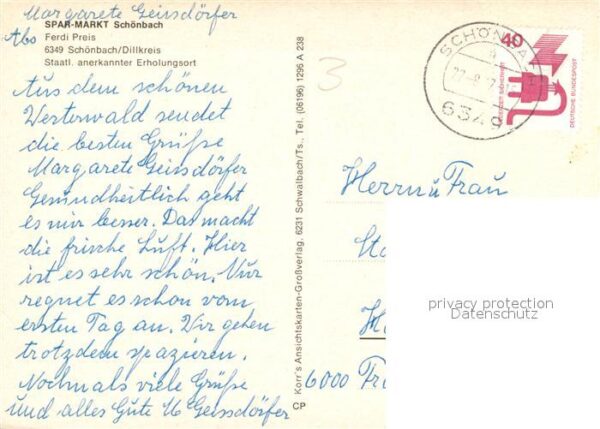 Margarete Geissdörfer
Abs
SPAR-MARKT Schönbach
Ferdi Preis
6349 Schönbach/Dillkreis
Staatl. anerkannter Erholungsort
Aus dem schönen
Westerwald sendet
die besten Grüße
Margarete Geissdörfer
Gesundheitlich geht
es mir besser. Das macht
die frische Luft. Hier
ist es sehr schön. Nur
regnet es schon vom
ersten Tag an. Wir gehen
trotzdem spazieren.
Nochmals viele Grüße
und alles Gute M Geissdörfer
Korr's Ansichtskarten-Großverlag, 6231 Schwalbach/Ts., Tel. (06196) 1295 A 238
CP
3
SCHÖNBACH
6349
40
DEUTSCHE BUNDESPOST
Herrn u Frau
6000 Fr
privacy protection
Datenschutz